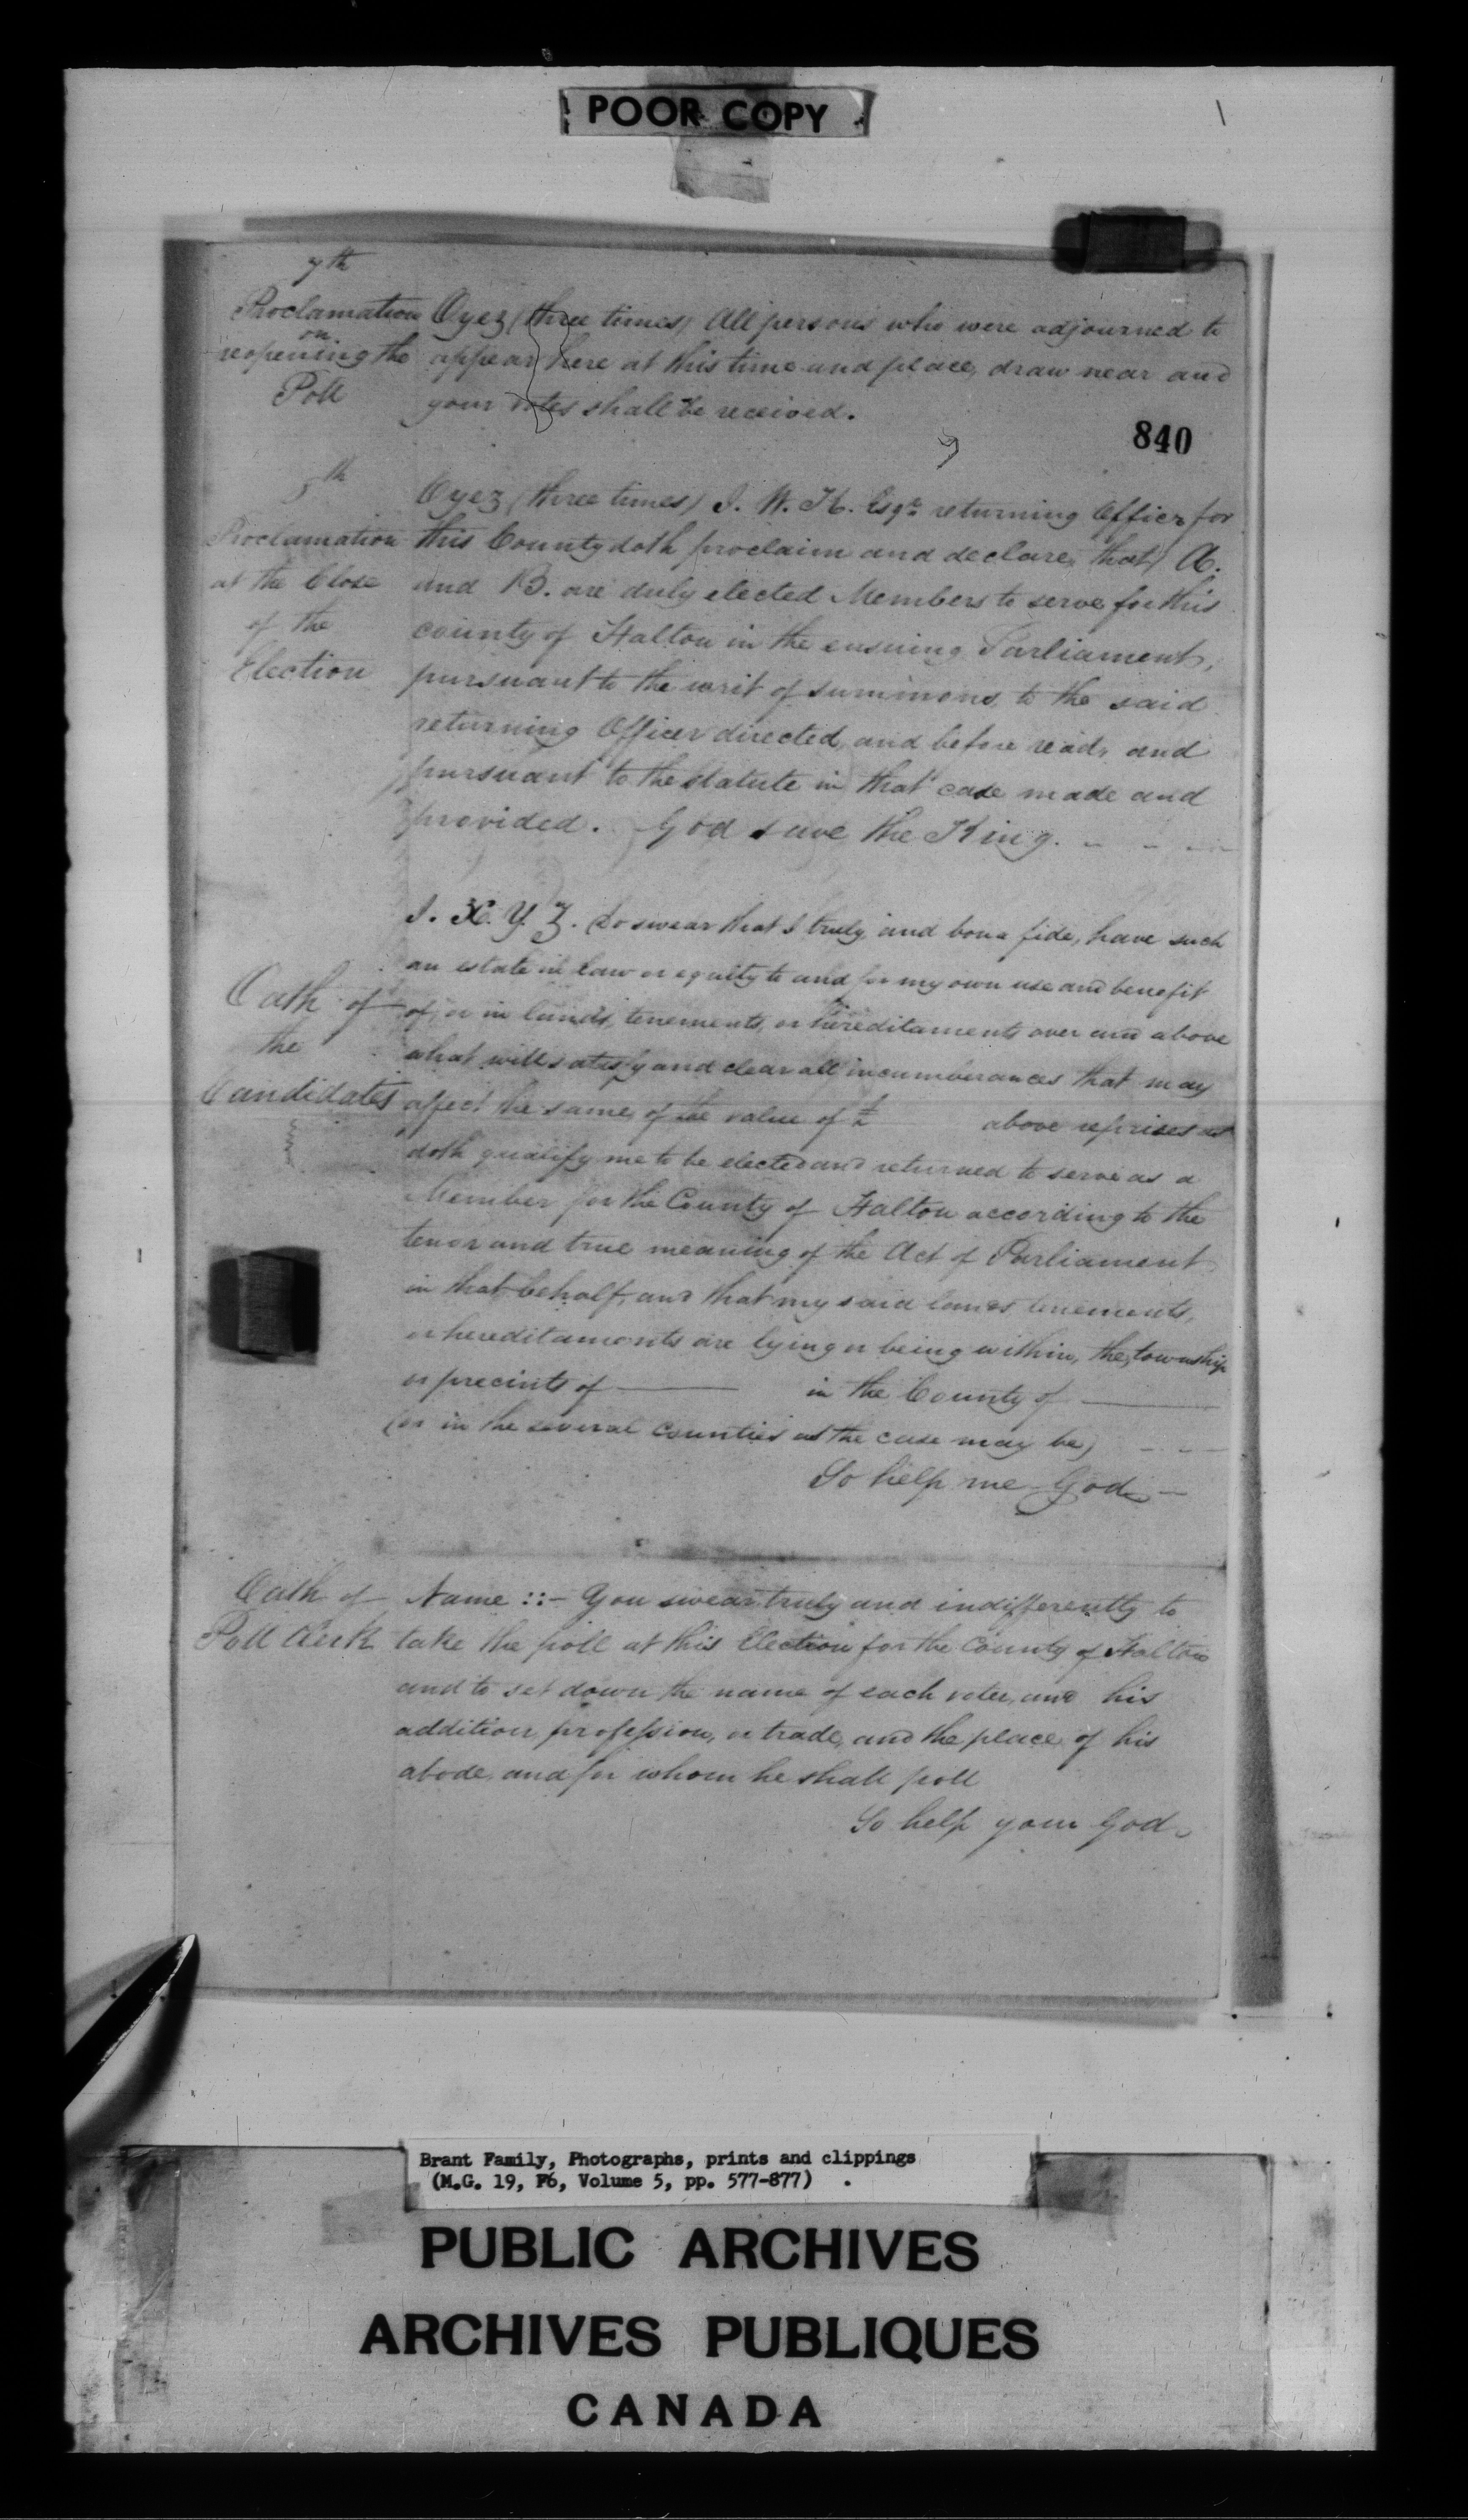 POOR COPY
7th
Proclamation
on
reopening the
Poll
Oyez (three times) All persons who were adjourned to
appear here at this time and place, draw near and
your votes shall be received.
840
5th
Proclamation
at the Close
of the
Election
Oyez (three times) J. W. K. Esqr. returning Officer for
this County doth proclaim and declare, that A.
and B. are duly elected Members to serve for this
county of Halton in the ensuing Parliament,
pursuant to the writ of summons, to the said
returning Officer directed, and before read, and
pursuant to the statute in that case made and
provided. God save the King.
Oath of
the
Candidates
I. X. Y. Z. do swear that I truly and bona fide, have such
an estate in law or equity to and for my own use and benefit
of, or in lands, tenements, or hereditaments over and above
what will satisfy and clear all incumberances that may
affect the same, of the value of £ above reprises as
doth qualify me to be elected and returned to serve as a
Member for the County of Halton according to the
tenor and true meaning of the Act of Parliament
in that behalf, and that my said lands, tenements,
or hereditaments are lying or being within, the township
or precints of ——— in the County of ———
(or in the several counties as the case may be)
So help me God —
Oath of
Poll Clerk
Name ::- You swear truly and indifferently to
take the poll at this Election for the County of Halton
and to set down the name of each voter, and his
addition, profession, or trade, and the place of his
abode, and for whom he shall poll
So help your God
Brant Family, Photographs, prints and clippings
(M.G. 19, F6, Volume 5, pp. 577-877) .
PUBLIC ARCHIVES
ARCHIVES PUBLIQUES
CANADA